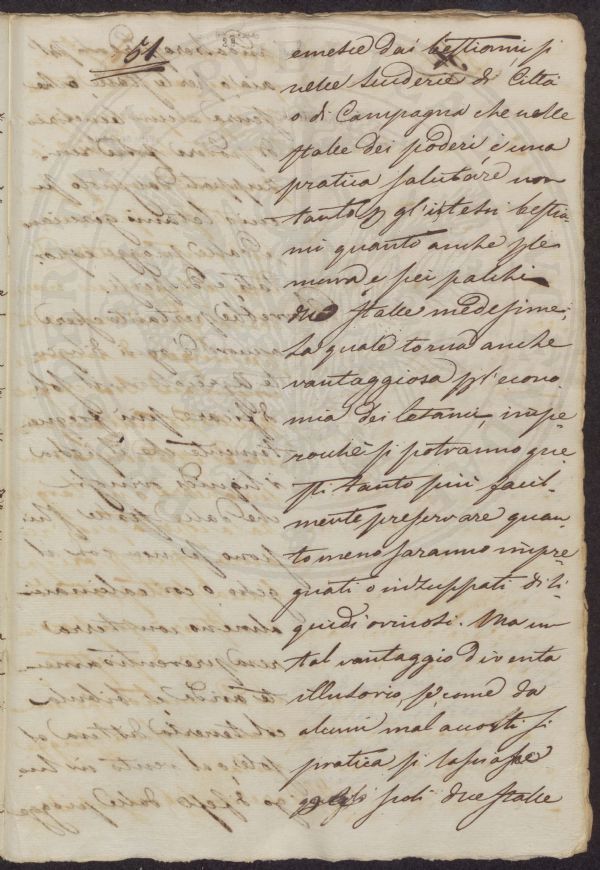 51
emesse dai bestiami, si
nelle scuderie di Città
o di Campagna che nelle
stalle dei poderi è una
pratica salutare non
tanto p gl'istessi bestia-
mi quanto anche p le
mura e pei palchi
stalle medesime;
La quale torna anche
vantaggiosa p l'econo
mia dei letami, impe
rocchè si potranno que
sti tanto più facil-
mente preservare quan
to meno saranno impre
gnati o inzuppati di li
quidi orinosi. Ma un
tal vantaggio diventa
illusorio, se come da
alcuni mal accorti si
pratica si lasciasse
scoli delle stalle